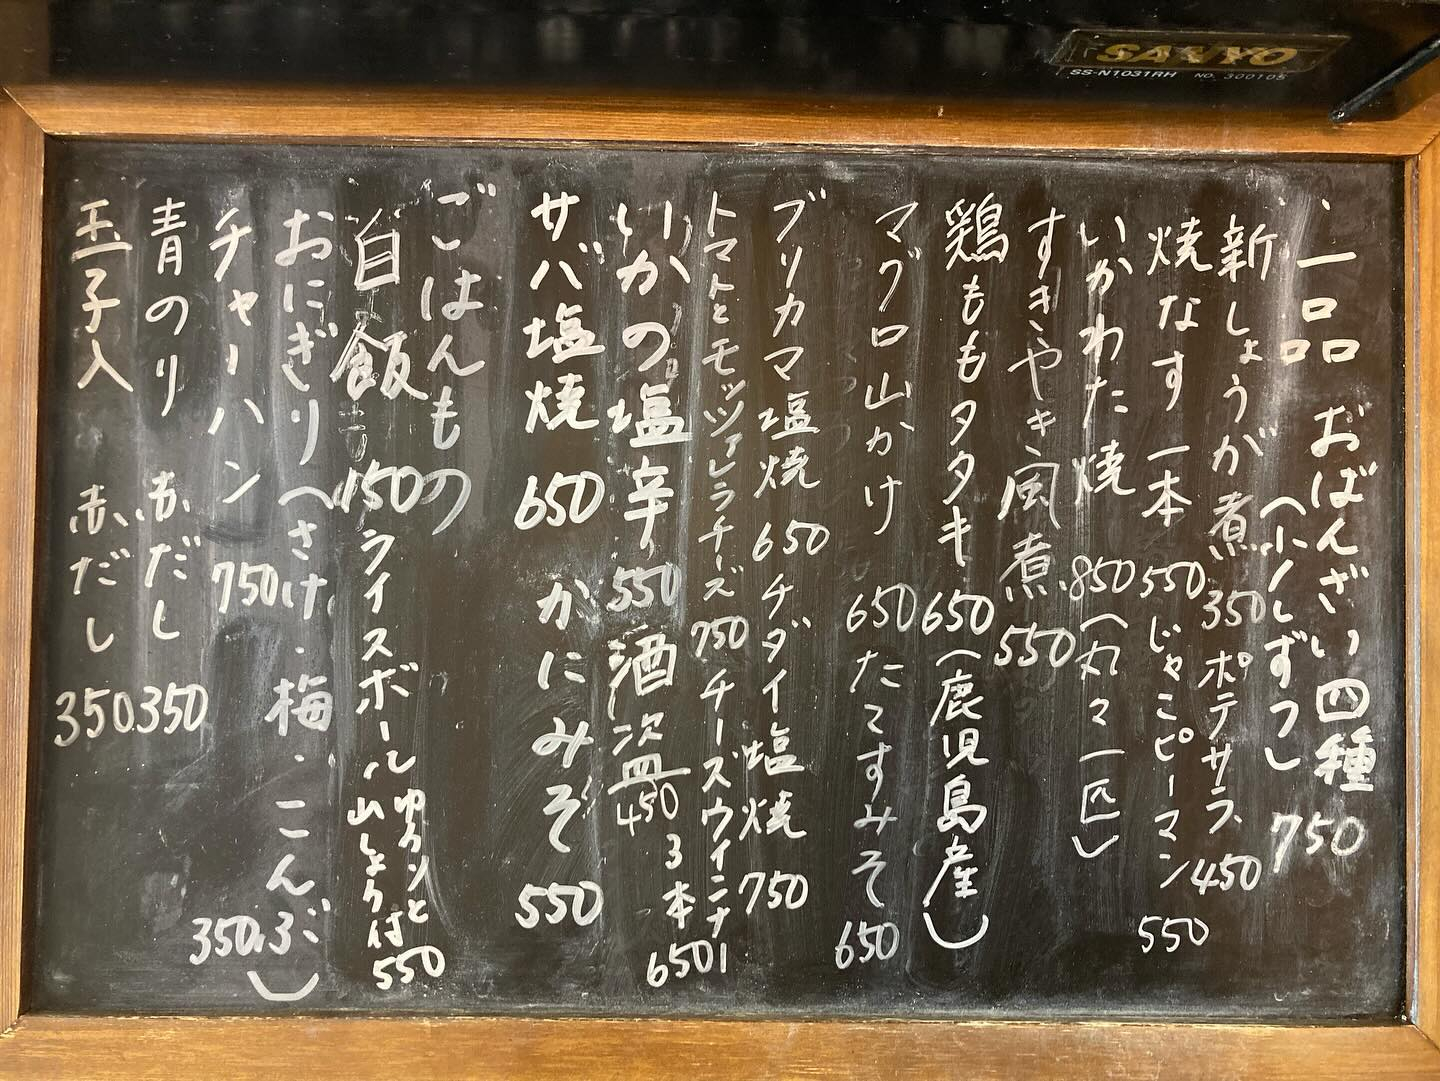 SANYO
SS-N1031RH NO. 300105
一品 おばんざい四種 750
(少しずつ)
新しょうが煮 350 ポテサラ 450
焼なす 一本 550 じゃこピーマン 550
いかわた焼 850 (丸々一匹)
すきやき風煮 550
鶏ももタタキ 650 (鹿児島産)
マグロ山かけ 650 たてすみそ 650
ブリカマ塩焼 650 チダイ塩焼 750
トマトとモッツァレラチーズ 750 チーズウインナー 3本 650
いかの塩辛 550 酒盗 450
サバ塩焼 650 かにみそ 550
ごはんもの
白飯 150 ライスボール 550
山しょう付
おにぎり(さけ・梅・こんぶ) 350
チャーハン 750
青のり 赤だし 350
玉子入 赤だし 350